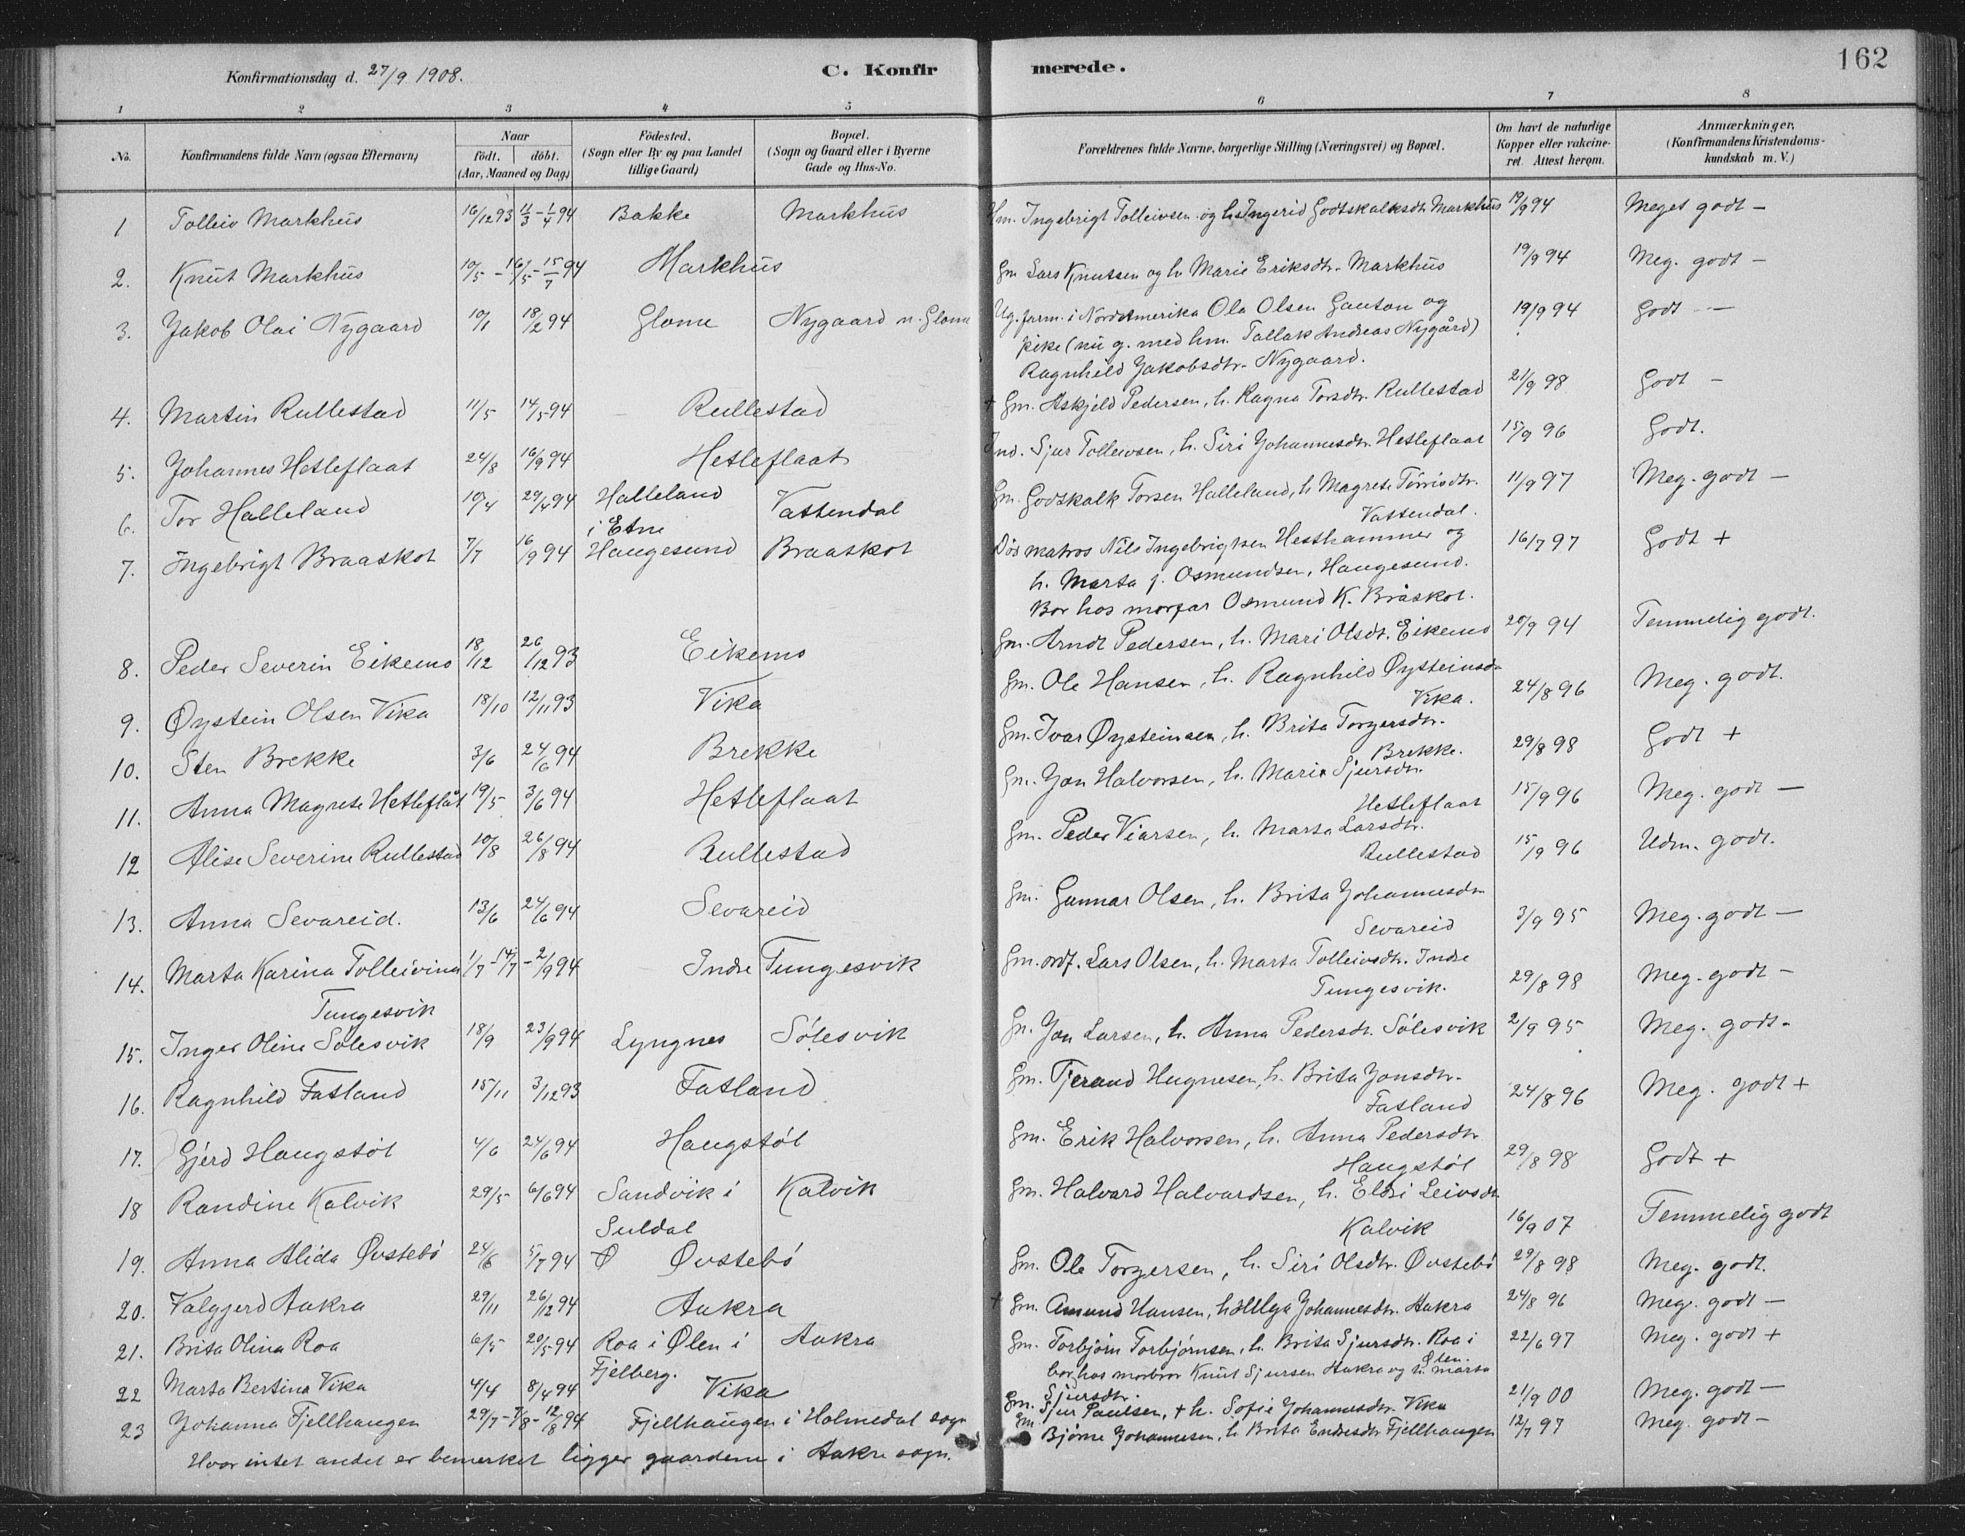 162
Konfirmationsdag d. 27/9 1908.
C. Konfirmerede.
1 2 3 4 5 6 7 8
No. Konfirmandens fulde Navn (ogsaa Efternavn) Naar födt. döbt. (Aar, Maaned og Dag) Födested. (Sogn eller By og paa Landet tillige Gaard) Bopæl. (Sogn og Gaard eller i Byerne Gade og Hus-No. Forældrenes fulde Navne, borgerlige Stilling (Næringsvei) og Bopæl. Om havt de naturlige Kopper eller vakcineret. Attest herom. Anmærkninger, (Konfirmandens Kristendomskundskab m. V.)
1 Tolleiv Markhus 16/12 93 11/3 - 1/4 94 Bakke Markhus Hm. Ingebrigt Tolleivsen og h. Ingerid Godtskalksdt. Markhus 19/9 94 Meget godt -
2. Knut Markhus 10/5 - 16/5 - 15/7 94 Markhus Gm. Lars Knutsen og h. Marie Eriksdtr. Markhus 19/9 94 Meg. godt -
3. Jakob Olai Nygaard 10/1 18/2 94 Glome Nygaard u. Glome Ug. farm. i Nordamerika Ola Olsen Gauton og 19/9 94 Godt -
pike (nu g. med hm. Tallak Andreas Nygård)
Ragnhild Jakobsdtr. Nygaard.
4. Martin Rullestad 11/5 14/5 94 Rullestad + Gm. Askjeld Pedersen, h. Ragna Torsdtr. Rullestad 21/9 98 Godt -
5. Johannes Hetleflaat 24/8 16/9 94 Hetleflaat Ind. Sjur Tolleivsen, h. Siri Johannesdtr. Hetleflaat 15/9 96 Godt.
6. Tor Halleland 10/4 29/4 94 Halleland i Etne Vattendal Gm. Godskalk Torsen Halleland, h. Magrete Tørrisdtr. 11/9 97 Meg. godt -
Vattendal.
7. Ingebrigt Braaskot 7/7 16/9 94 Haugesund Braaskot Døs matros Nils Ingebrigtsen Hesthammer og 16/7 97 Godt +
h. Marta j. Osmundsen, Haugesund.
Bor hos morfar Osmund K. Bråskot.
8. Peder Severin Eikemo 18/12 26/12 93 Eikemo Gm. Arndt Pedersen, h. Mari Olsdt. Eikemo 20/9 94 Temmelig godt.
9. Øystein Olsen Vika 18/10 12/11 93 Vika Gm. Ole Hansen, h. Ragnhild Øysteinsdtr 24/8 96 Meg. godt.
Vika.
10. Sten Brekke 3/6 24/6 94 Brekke Gm. Ivar Øysteinsen, h. Brita Torgersdtr. 29/8 98 Godt +
Brekke.
11. Anna Magrete Hetleflåt 19/5 3/6 94 Hetleflaat Gm. Jon Halvorsen, h. Mari Sjursdtr. 15/9 96 Meg. godt -
Hetleflaat
12 Alise Severine Rullestad 10/8 26/8 94 Rullestad Gm. Peder Viarsen, h. Marta Larsdtr. 15/9 96 Udm. godt.
Rullestad
13. Anna Sevareid. 13/6 24/6 94 Sevareid Gm. Gunnar Olsen, h. Brita Johannesdtr 3/9 95 Meg. godt -
Sevareid
14. Marta Karina Tolleivina 1/7 - 14/7 - 2/9 94 Indre Tungesvik Gm. ordf. Lars Olsen, h. Marta Tolleivsdtr. Indre 29/8 98 Meg. godt -
Tungesvik Tungesvik.
15. Inger Oline Sølesvik 18/9 23/9 94 Lyngnes Sølesvik Gm. Jon Larsen, h. Anna Pedersdt. Sølesvik 2/9 95 Meg. godt -
16. Ragnhild Fatland 15/11 3/12 93 Fatland Gm. Tjerand Hugnesen, h. Brita Jonsdtr. 24/8 96 Meg. godt +
Fatland
17. Gjerd Haugstøl 4/6 24/6 94 Haugstøl Gm. Erik Halvorsen, h. Anna Pedersdtr 29/8 98 Godt +
Haugstøl
18 Randine Kalvik 29/5 6/6 94 Sandvik i Suldal Kalvik Gm. Halvard Halvardsen, h. Eldri Leivsdtr 16/9 07 Temmelig godt
Kalvik
19. Anna Alida Øvstebø 24/6 5/7 94 Øvstebø Gm. Ole Torgersen, h. Siri Olsdtr. Øvstebø 29/8 98 Meg. godt.
20. Valgjerd Aakra 29/11 26/12 94 Aakra + Gm. Amund Hansen, h. Helga Johannesdtr. Aakra 24/8 96 Meg. godt -
21. Brita Olina Roa 6/5 20/5 94 Roa i Ølen i Fjelberg. Aakra Gm. Torbjørn Torbjørnsen, h. Brita Sjursdtr. Roa i Ølen. 22/6 97 Meg. godt +
bor hos morbror Knut Sjursen Aakra og h. Marta
Sjursdtr.
22 Marta Bertina Vika 4/4 8/4 94 Vika Gm. Sjur Paulsen, + h. Sofie Johannesdtr. Vika 21/9 00 Meg. godt -
23 Johanna Fjellhaugen 29/7 - 7/8 - 12/8 94 Fjellhaugen i Holmedal sogn Gm. Bjørne Johannesen, h. Brita Endresdtr Fjellhaugen 12/7 97 Meg. godt -
Hvor intet andet er bemerket ligger gaardene i Aakre sogn.